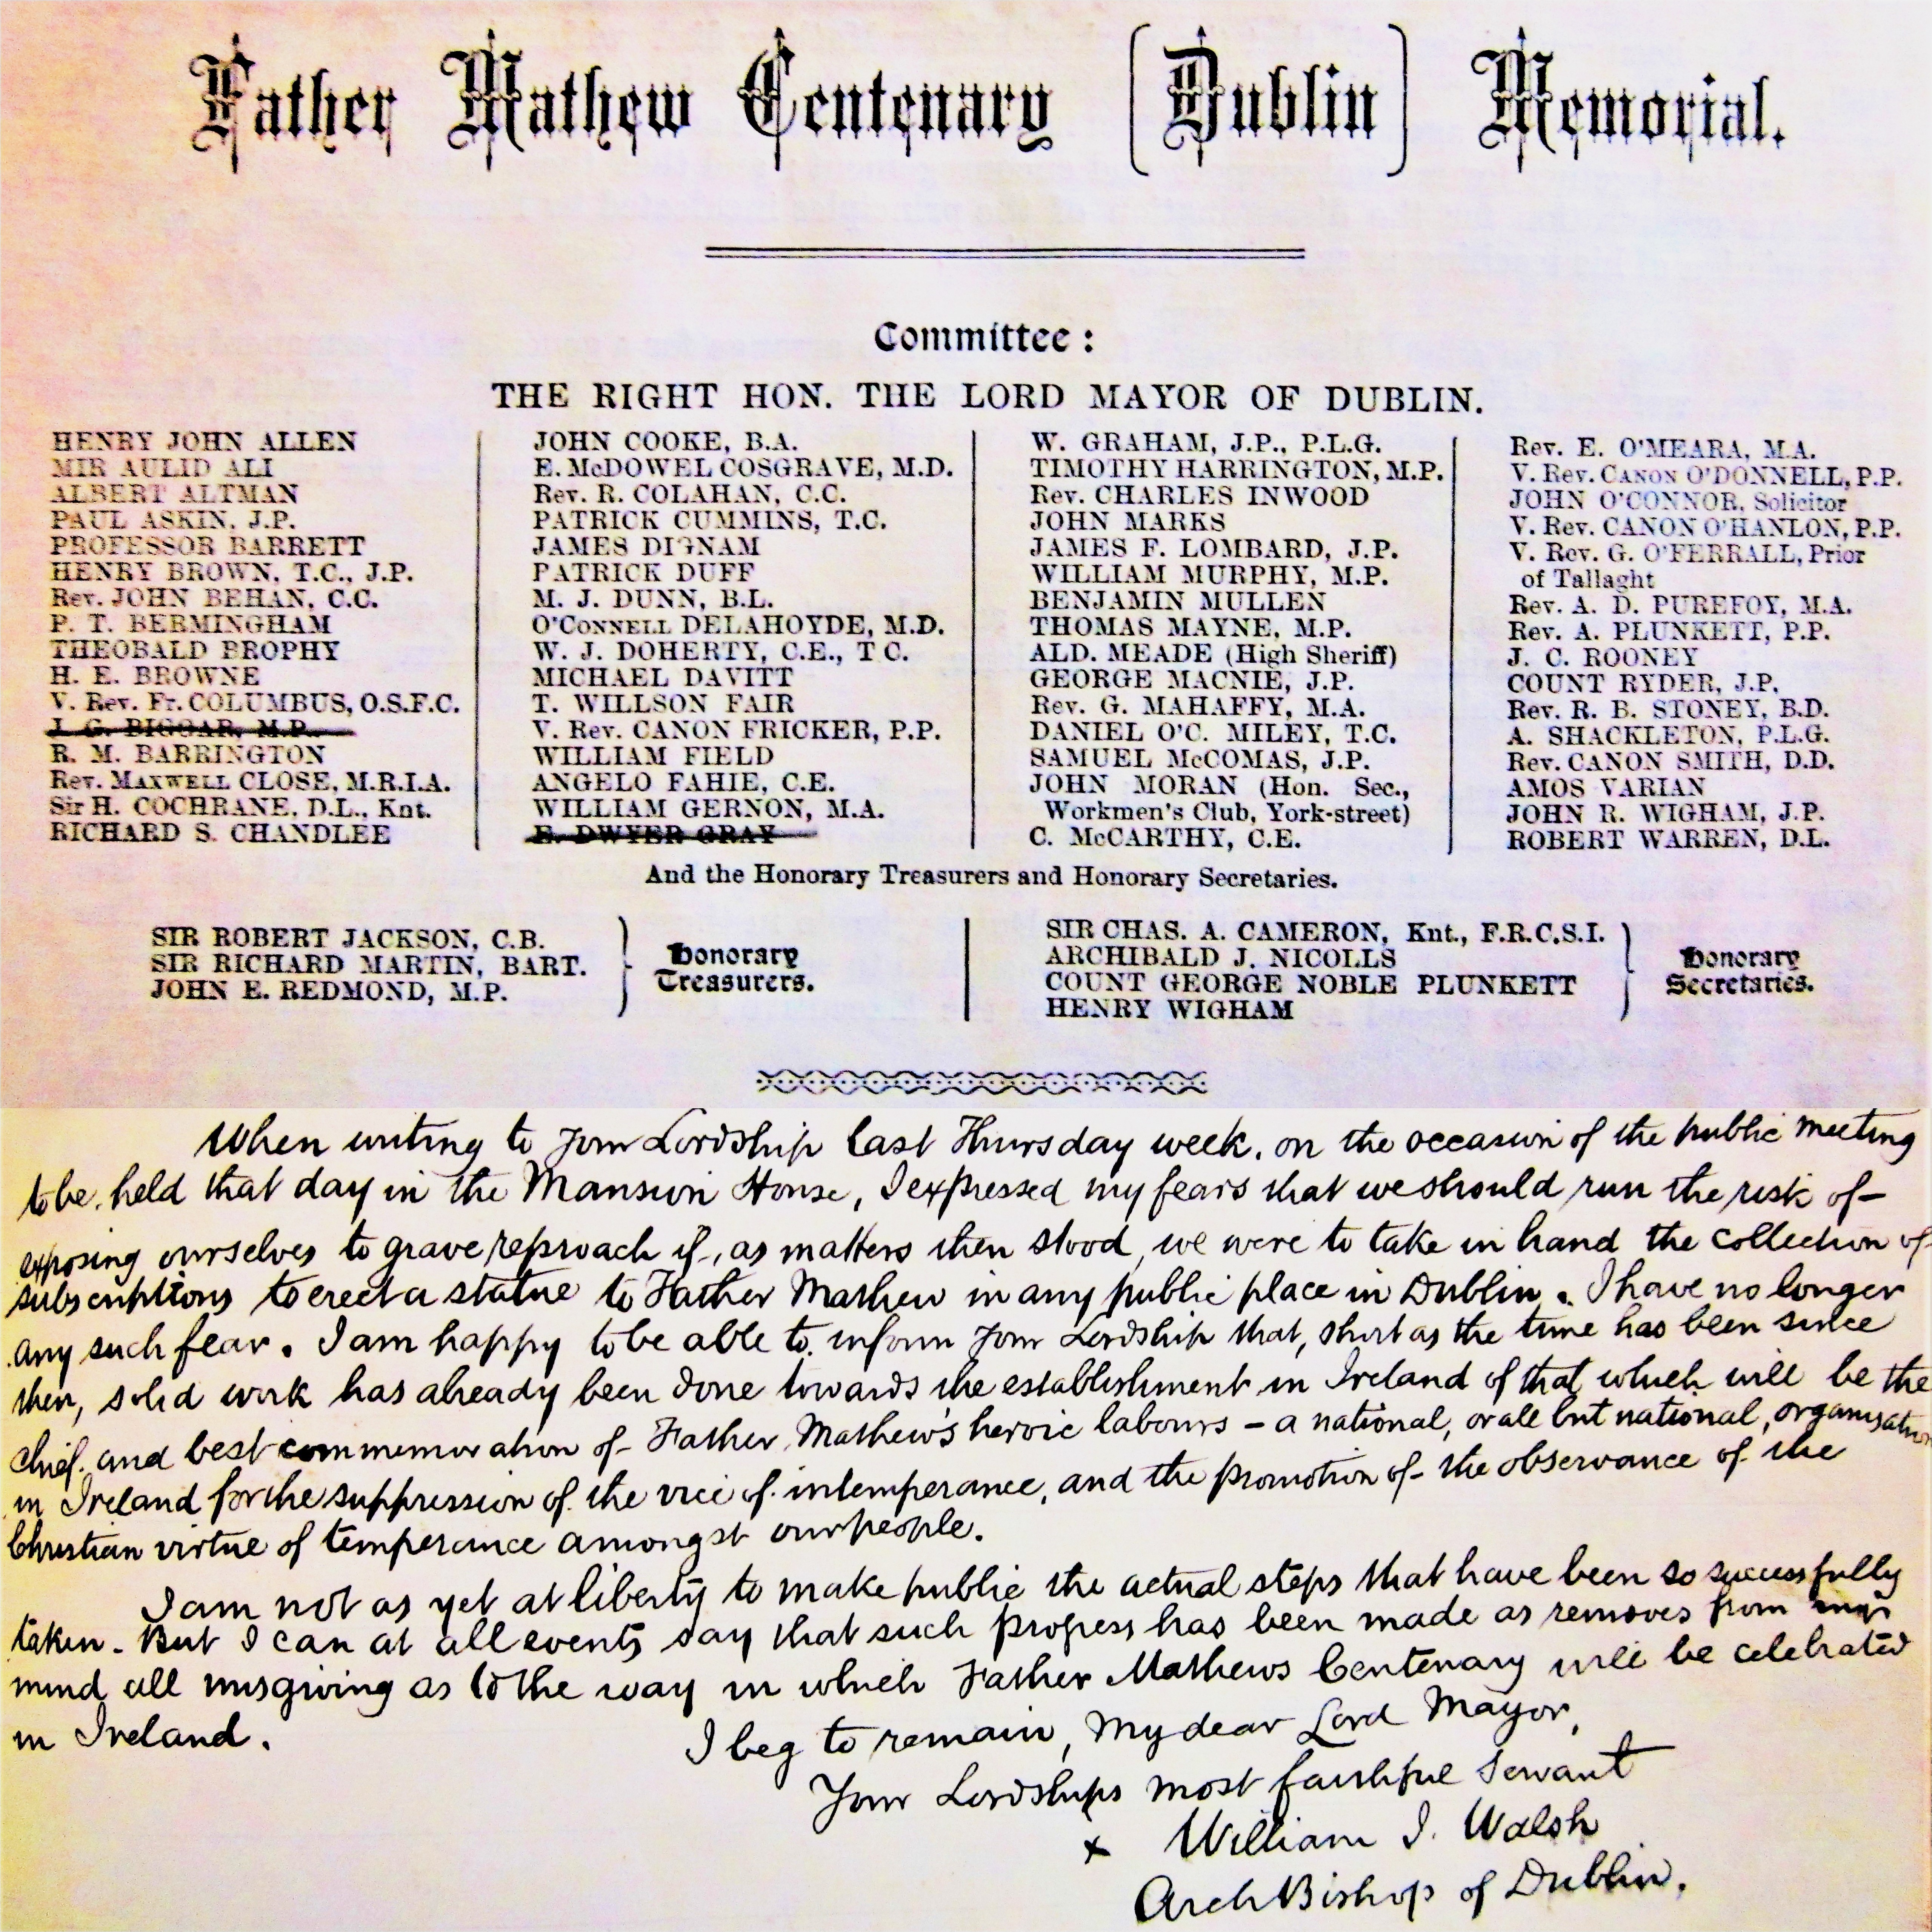 Father Mathew Centenary (Dublin) Memorial.
Committee:
THE RIGHT HON. THE LORD MAYOR OF DUBLIN.
HENRY JOHN ALLEN
MIR AULID ALI
ALBERT ALTMAN
PAUL ASKIN, J.P.
PROFESSOR BARRETT
HENRY BROWN, T.C., J.P.
Rev. JOHN BEHAN, C.C.
P. T. BERMINGHAM
THEOBALD BROPHY
H. E. BROWNE
V. Rev. Fr. COLUMBUS, O.S.F.C.
J. G. BIGGAR, M.P.
R. M. BARRINGTON
Rev. MAXWELL CLOSE, M.R.I.A.
Sir H. COCHRANE, D.L., Knt.
RICHARD S. CHANDLEE
JOHN COOKE, B.A.
E. McDOWEL COSGRAVE, M.D.
Rev. R. COLAHAN, C.C.
PATRICK CUMMINS, T.C.
JAMES DIGNAM
PATRICK DUFF
M. J. DUNN, B.L.
O'CONNELL DELAHOYDE, M.D.
W. J. DOHERTY, C.E., T C.
MICHAEL DAVITT
T. WILLSON FAIR
V. Rev. CANON FRICKER, P.P.
WILLIAM FIELD
ANGELO FAHIE, C.E.
WILLIAM GERNON, M.A.
E. DWYER GRAY
W. GRAHAM, J.P., P.L.G.
TIMOTHY HARRINGTON, M.P.
Rev. CHARLES INWOOD
JOHN MARKS
JAMES F. LOMBARD, J.P.
WILLIAM MURPHY, M.P.
BENJAMIN MULLEN
THOMAS MAYNE, M.P.
ALD. MEADE (High Sheriff)
GEORGE MACNIE, J.P.
Rev. G. MAHAFFY, M.A.
DANIEL O'C. MILEY, T.C.
SAMUEL McCOMAS, J.P.
JOHN MORAN (Hon. Sec.,
Workmen's Club, York-street)
C. McCARTHY, C.E.
Rev. E. O'MEARA, M.A.
V. Rev. CANON O'DONNELL, P.P.
JOHN O'CONNOR, Solicitor
V. Rev. CANON O'HANLON, P.P.
V. Rev. G. O'FERRALL, Prior
of Tallaght
Rev. A. D. PUREFOY, M.A.
Rev. A. PLUNKETT, P.P.
J. C. ROONEY
COUNT RYDER, J.P.
Rev. R. B. STONEY, B.D.
A. SHACKLETON, P.L.G.
Rev. CANON SMITH, D.D.
AMOS VARIAN
JOHN R. WIGHAM, J.P.
ROBERT WARREN, D.L.
And the Honorary Treasurers and Honorary Secretaries.
SIR ROBERT JACKSON, C.B.
SIR RICHARD MARTIN, BART.
JOHN E. REDMOND, M.P.
Honorary
Treasurers.
SIR CHAS. A. CAMERON, Knt., F.R.C.S.I.
ARCHIBALD J. NICOLLS
COUNT GEORGE NOBLE PLUNKETT
HENRY WIGHAM
Honorary
Secretaries.
When writing to Your Lordship last Thursday week, on the occasion of the public meeting
to be held that day in the Mansion House, I expressed my fears that we should run the risk of
exposing ourselves to grave reproach if, as matters then stood, we were to take in hand the collection of
subscriptions to erect a statue to Father Mathew in any public place in Dublin. I have no longer
any such fear. I am happy to be able to inform Your Lordship that, short as the time has been since
then, solid work has already been done towards the establishment in Ireland of that which will be the
chief and best commemoration of Father Mathew's heroic labours - a national, or all but national, organisation
in Ireland for the suppression of the vice of intemperance, and the promotion of the observance of the
Christian virtue of temperance amongst our people.
I am not as yet at liberty to make public the actual steps that have been so successfully
taken. But I can at all events say that such progress has been made as removes from my
mind all misgiving as to the way in which Father Mathews Centenary will be celebrated
in Ireland.
I beg to remain, My dear Lord Mayor,
Your Lordships most faithful servant
x William J. Walsh
ArchBishop of Dublin.